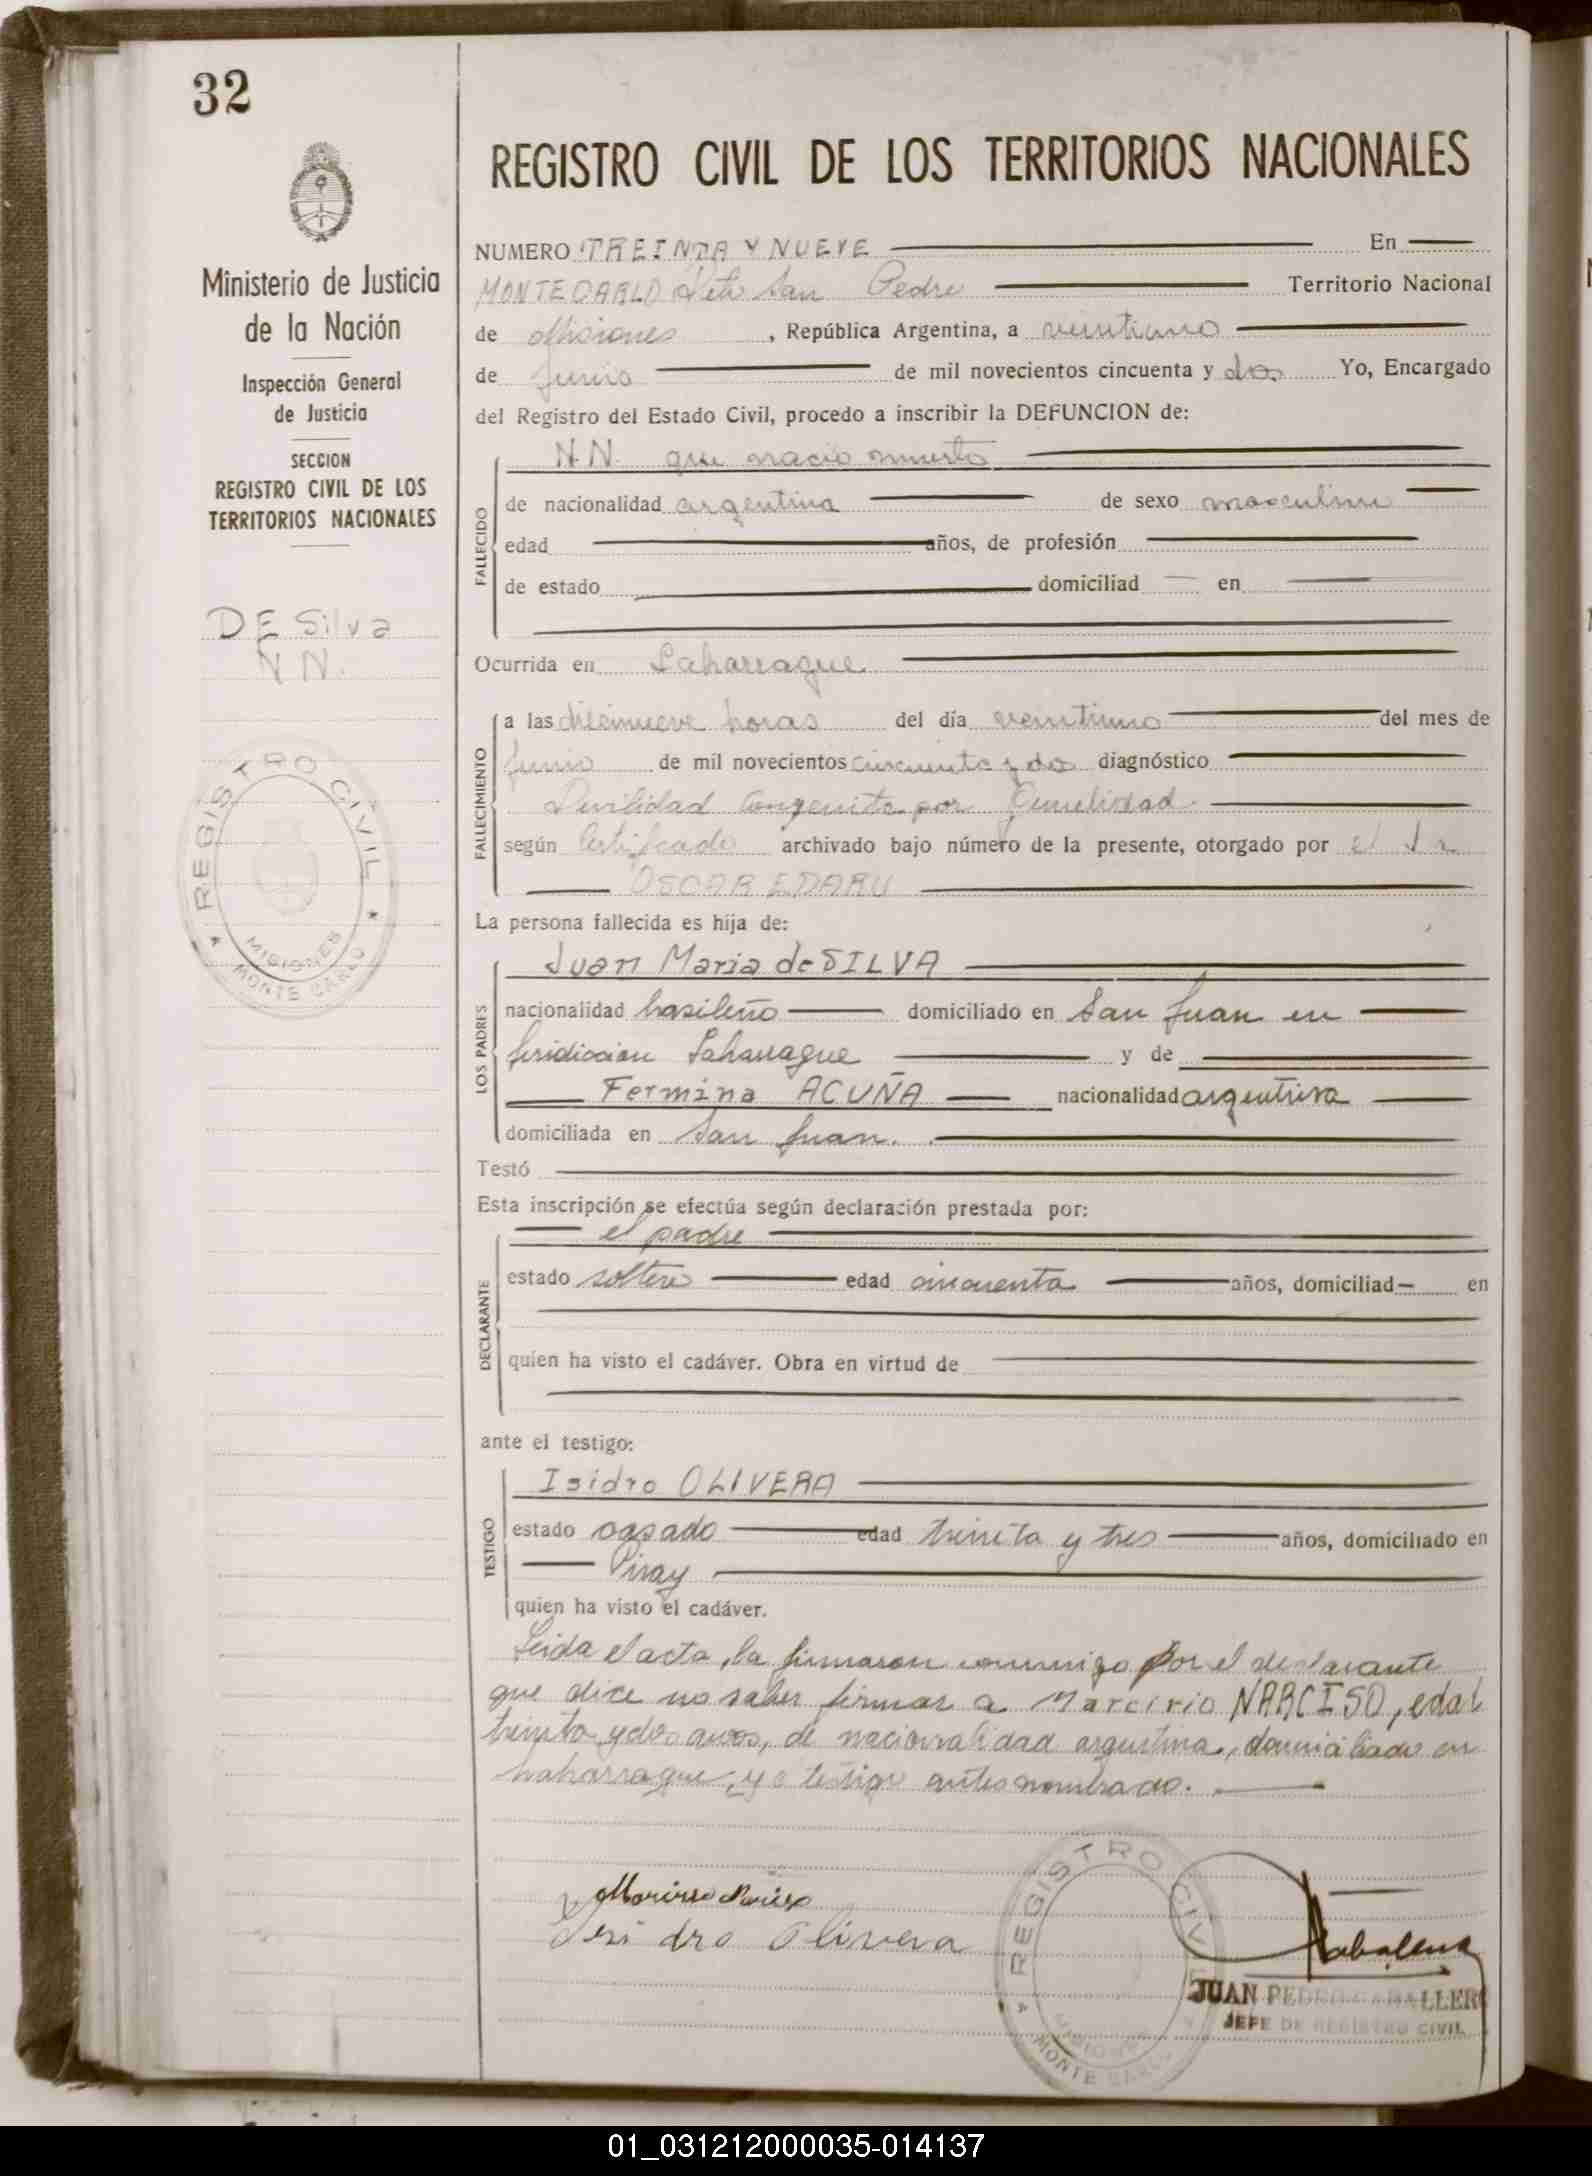 32
Ministerio de Justicia
de la Nación
Inspección General
de Justicia
SECCION
REGISTRO CIVIL DE LOS
TERRITORIOS NACIONALES
DE Silva
N N.
REGISTRO CIVIL
MISIONES
MONTE CARLO
REGISTRO CIVIL DE LOS TERRITORIOS NACIONALES
NUMERO TREINTA Y NUEVE En
MONTECARLO Dto San Pedro Territorio Nacional
de Misiones , República Argentina, a veintiuno
de junio de mil novecientos cincuenta y dos Yo, Encargado
del Registro del Estado Civil, procedo a inscribir la DEFUNCION de:
N.N. que nacio muerto
FALLECIDO
de nacionalidad argentina de sexo masculino
edad años, de profesión
de estado domiciliad en
Ocurrida en Laharrague
FALLECIMIENTO
a las diecinueve horas del día veintiuno del mes de
junio de mil novecientos cincuenta y dos diagnóstico
Devilidad Congenita por Gemelidad
según Certificado archivado bajo número de la presente, otorgado por el Dr
OSCAR E. DARU
La persona fallecida es hija de:
LOS PADRES
Juan Maria de SILVA
nacionalidad brasileño domiciliado en San Juan en
Juridiccion Laharrague y de
Fermina ACUÑA nacionalidad argentina
domiciliada en San Juan.
Testó
Esta inscripción se efectúa según declaración prestada por:
DECLARANTE
el padre
estado soltero edad cincuenta años, domiciliad en
quien ha visto el cadáver. Obra en virtud de
ante el testigo:
TESTIGO
Isidro OLIVERA
estado casado edad treinta y tres años, domiciliado en
Piray
quien ha visto el cadáver.
Leida el acta, la firmaron conmigo Por el declarante
que dice no saber firmar a Marcirio NARCISO, edad
treinta y dos anos, de nacionalidad argentina, domiciliado en
Laharrague, y o testigo antes nombrado.
Isidro Olivera
REGISTRO CIVIL
MISIONES
MONTE CARLO
JUAN PEDRO CABALLERO
JEFE DE REGISTRO CIVIL
01_031212000035-014137